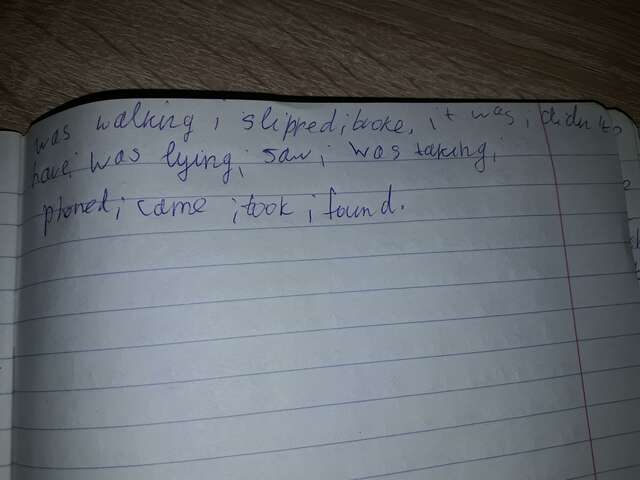 was walking; slipped; broke; it was; didn't
have; was lying; saw; was taking;
phoned; came; took; found.